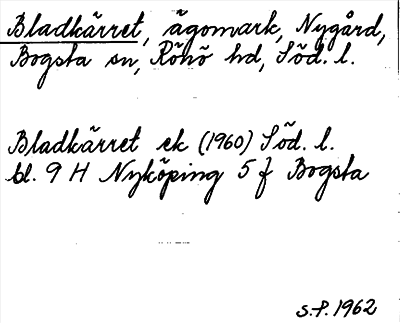 Bladkärret, ägomark, Nygård,
Bogsta sn, Rönö hd, Söd. l.
Bladkärret ek (1960) Söd. l.
bl. 9 H Nyköping 5 f Bogsta
S.P. 1962